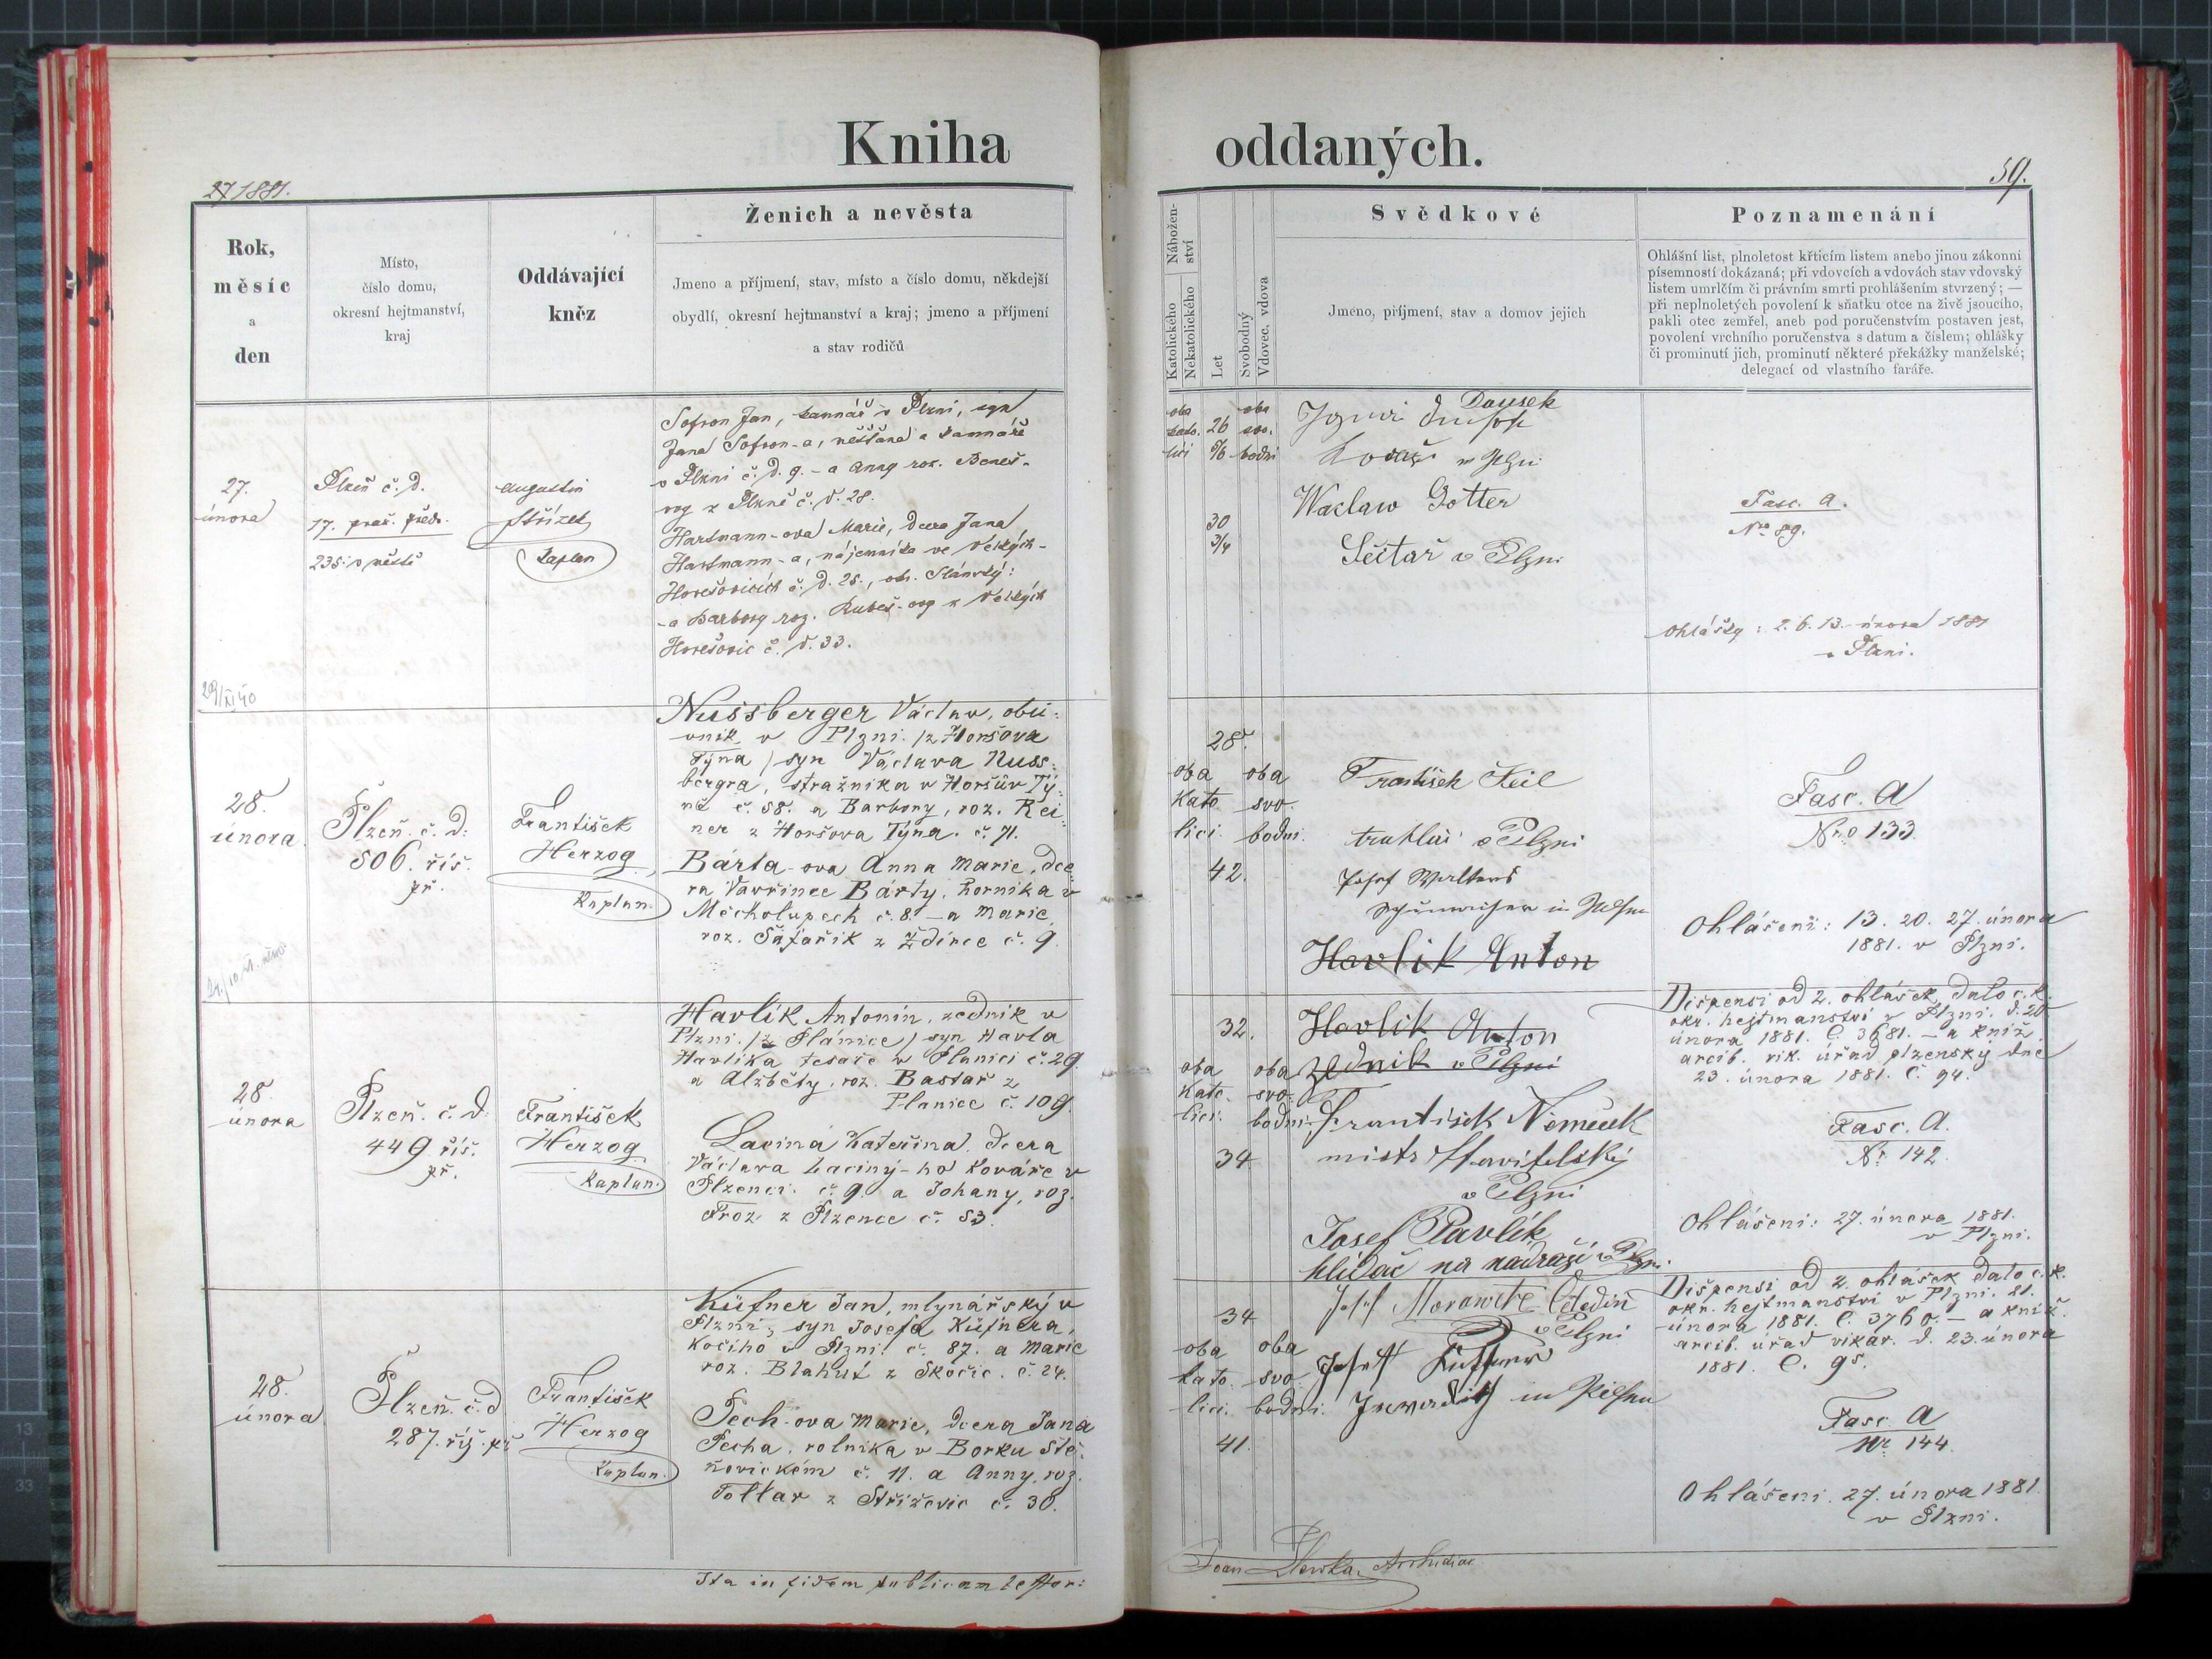 Kniha oddaných.
1881.
59.
Rok,
měsíc
a
den
Místo,
číslo domu,
okresní hejtmanství,
kraj
Oddávající
kněz
Ženich a nevěsta
Jmeno a příjmení, stav, místo a číslo domu, někdejší
obydlí, okresní hejtmanství a kraj; jmeno a příjmení
a stav rodičů
Nábožen-
ství
Katolického
Nekatolického
Let
Svobodný
Vdovec, vdova
Svědkové
Jméno, příjmení, stav a domov jejich
Poznamenání
Ohlášní list, plnoletost křticím listem anebo jinou zákonní
písemností dokázaná; při vdovcích a vdovách stav vdovský
listem umrlčím či právním smrti prohlášením stvrzený; —
při neplnoletých povolení k sňatku otce na živě jsoucího,
pakli otec zemřel, aneb pod poručenstvím postaven jest,
povolení vrchního poručenstva s datum a číslem; ohlášky
či prominutí jich, prominutí některé překážky manželské;
delegací od vlastního faráře.
27.
února
Plzeň č. d.
17. praž. předm.
235: v městě
Augustin
Střízek
Kaplan
Sofron Jan, kamnář v Plzni, syn
Jana Sofron-a, měšťana a kamnáře
v Plzni č. d. 9. - a Anny roz. Beneš-
ovy z Plzně č. d. 28.
Hartmann-ova Marie, dcera Jana
Hartmann-a, nájemníka ve Velkých-
Horešovicích č. d. 25., okr. Slánský:
-a Barbory roz. Kubeš-ovy z Velkých
Horešovic č. d. 33.
oba
kato.
líci
26
5/6
oba
svo.
bodni
30
3/4
Dousek
Kovář v Plzni
Waclaw Gotter
v Plzni
Fasc. A.
No. 89.
Ohlášky: 2. 6. 13. února 1881
v Plzni.
28.
února
Plzeň. č. d:
506. říš.
př.
František
Herzog
Kaplan.
Nussberger Václav, obu-
vník v Plzni. /z Horšova
Týna/ syn Václava Nuss-
bergra, stražníka v Horšův Tý-
ně č. 58. a Barbory, roz. Rei-
ner z Horšova Týna. č. 71.
Bárta-ova Anna Marie, dce-
ra Vavřince Bárty, horníka v
Měcholupech č. 8. - a Marie,
roz. Šafařík z Ždírce č. 9.
28.
oba
kato
líci.
oba
svo.
bodni.
42.
František Keil
truhlař v Plzni
Josef
in Pilsen
Havlik Anton
Fasc. A
Nro 133.
Ohlášení: 13. 20. 27. února
1881. v Plzni.
28.
února
Plzeň. č. d.
449 říš.
př.
František
Herzog
Kaplan.
Havlík Antonín, zedník v
Plzni. /z Plánice/ syn Havla
Havlíka tesaře v Planici č. 29.
a Alžběty, roz. Bastař z
Planice č. 109.
Lavina Kateřina, dcera
Václava Laciny-ho kováře v
Plzenci. č. 9. a Johany, roz.
Froz z Plzence č. 53.
32.
oba
kato-
líci.
oba
svo-
bodni.
34
Havlik Anton
zednik v Plzni
Frantisek Němeček
mistr stavitelský
v Plzni
Josef Pavlík
hlídač na nádraží v Plzni.
Dispensi od 2. ohlášek dalo c. k.
okr. hejtmanství v Plzni. d. 20
února 1881. č. 3681. - a kníž.
arcib. vik. úřad plzenský dne
23. února 1881. č. 94.
Fasc. A.
Nr. 142
Ohlášení: 27. února 1881.
v Plzni.
28.
února
Plzeň. č. d
287. říš. př
František
Herzog
Kaplan.
Küfner Jan, mlynářský v
Plzni, syn Josefa Küfnera,
kočího v Plzni č. 87. a Marie
roz. Blahut z Skočic. č. 24.
Pech-ova Marie, dcera Jana
Pecha, rolníka v Borku Ště-
ňovickém č. 11. a Anny, roz.
Toltar z Střížovic č. 30.
34
oba
kato
líci.
oba
svo
bodni.
41.
Josef Morawetz čeledín
v Plzni
Josef Küffner
in Pilsen
Dispensi od 2. ohlášek dalo c. k.
okr. hejtmanství v Plzni. 21.
února 1881. č. 3760. - a kníž.
arcib. úřad vikár. d. 23. února
1881. č. 95.
Fasc. A
Nr. 144.
Ohlášení. 27. února 1881.
v Plzni.
Ita in fidem publicam testor: